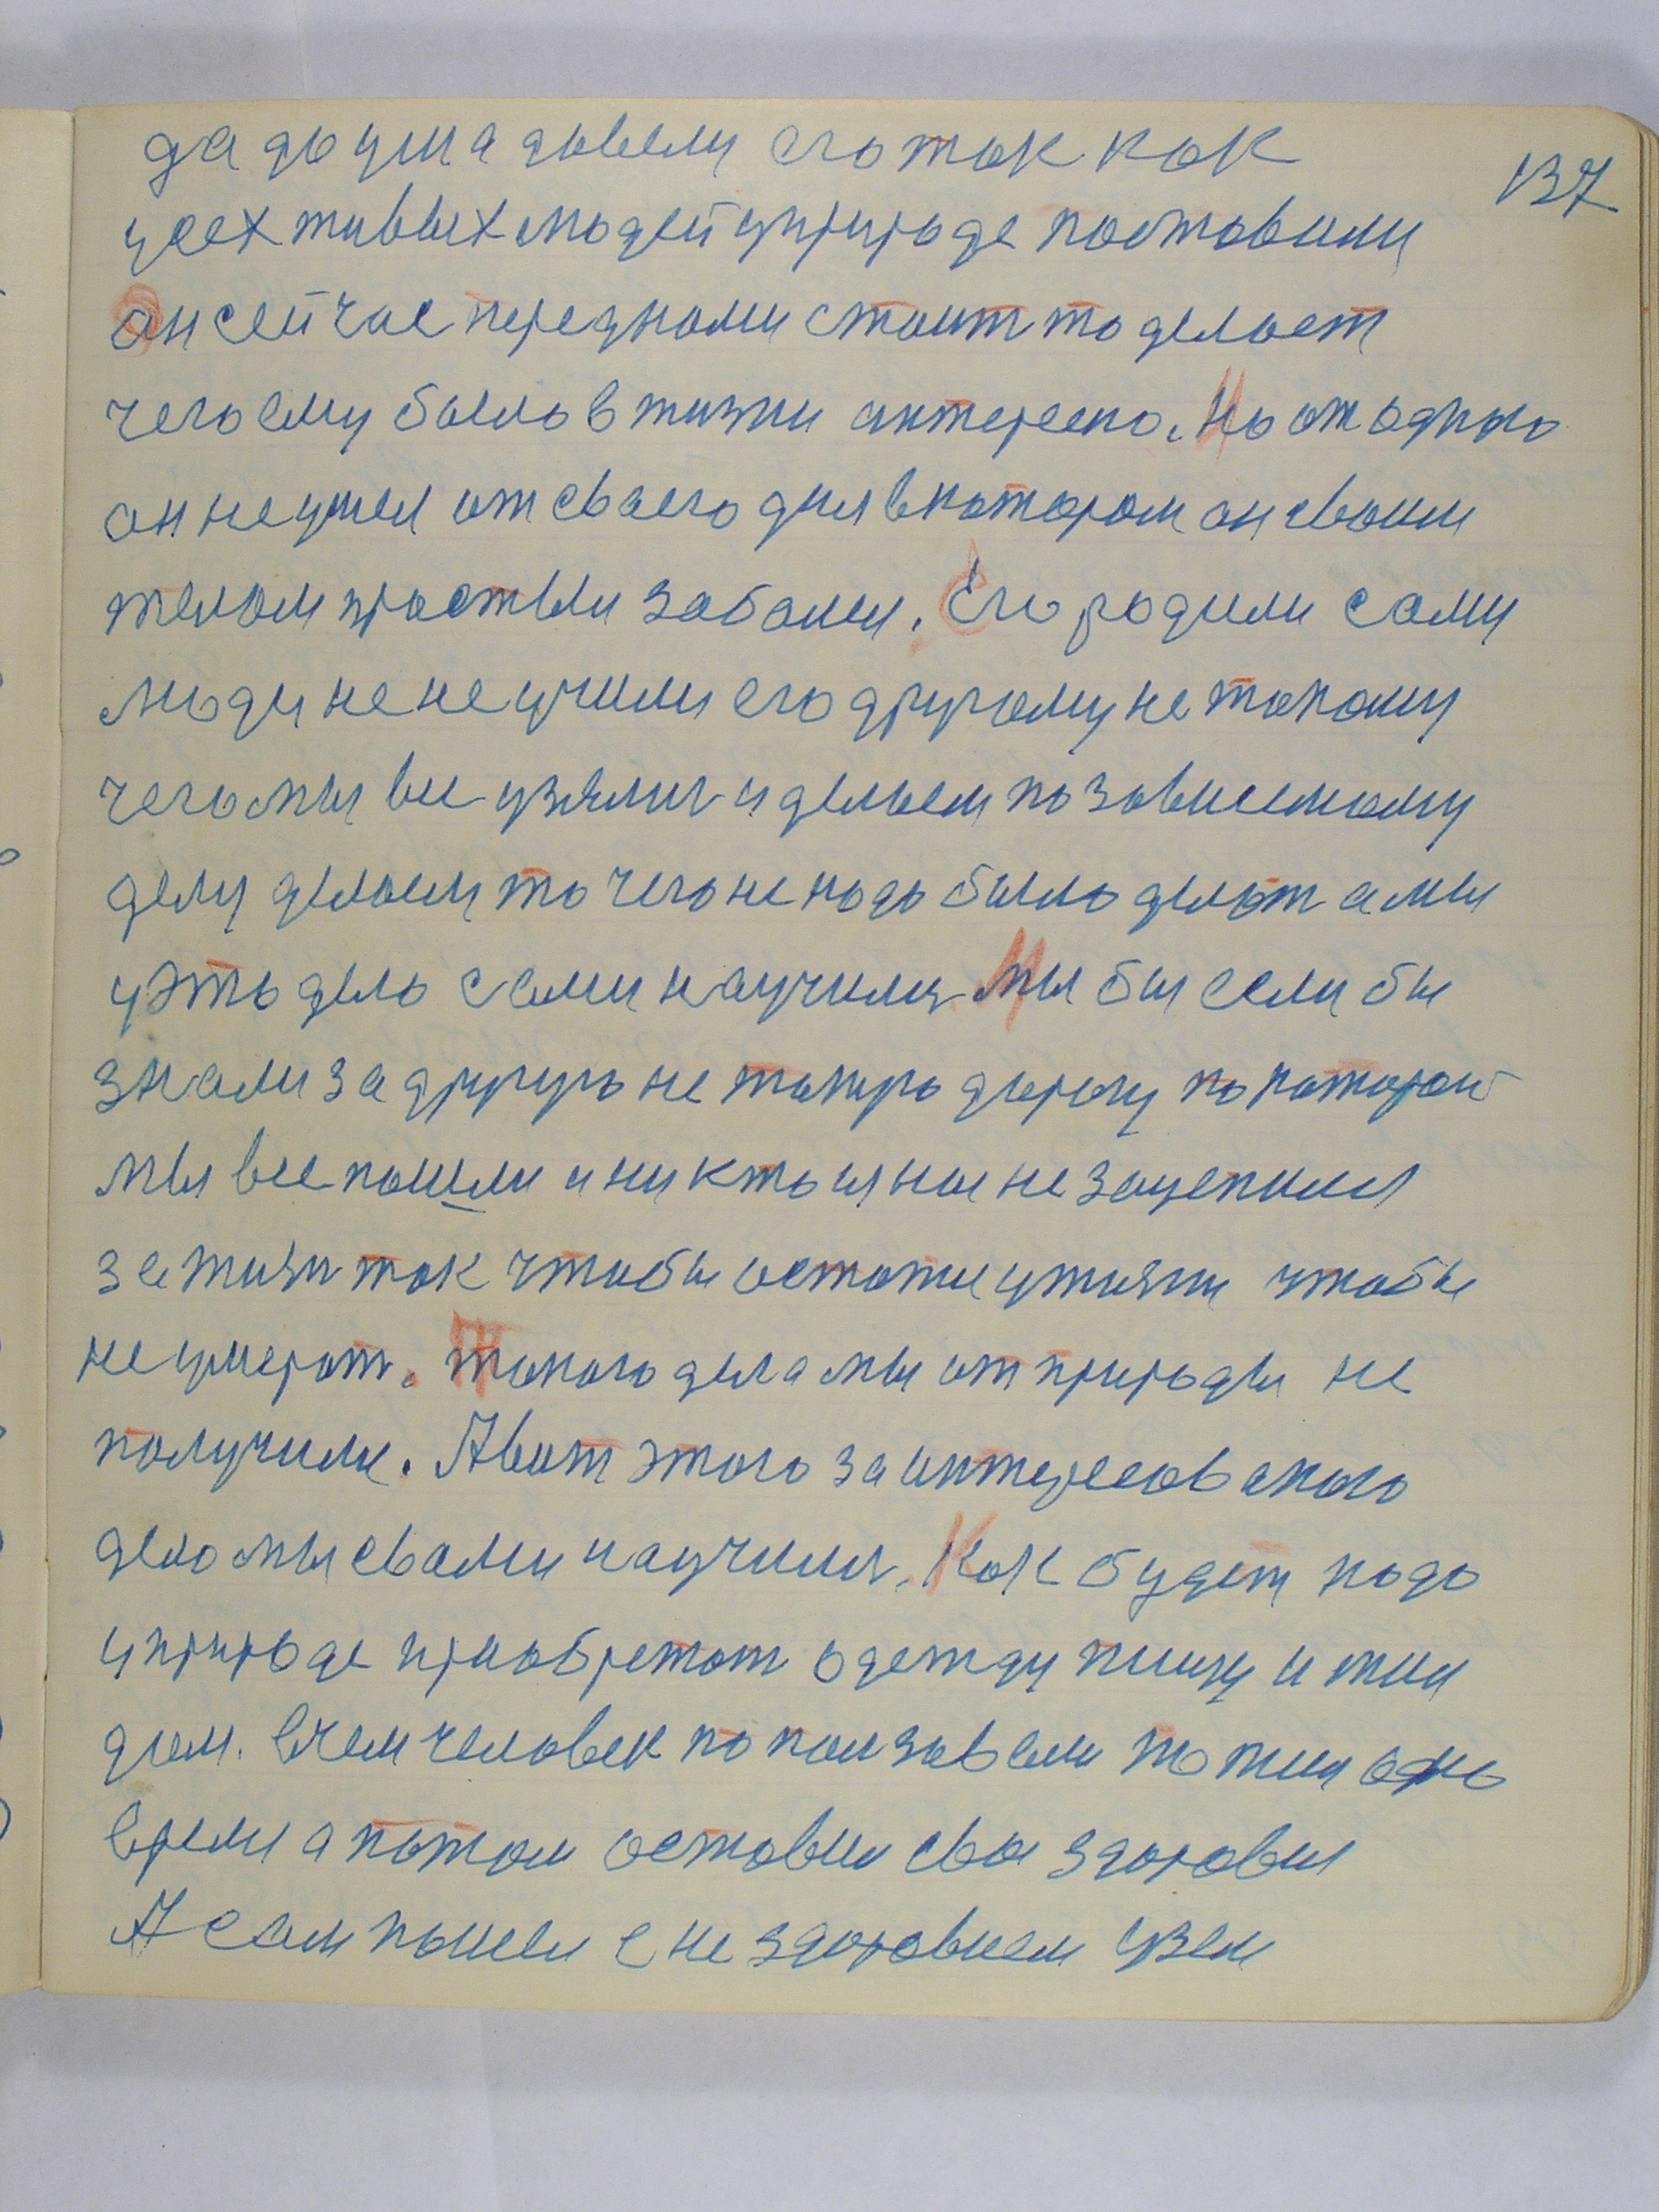 137
да доума довели его так как
усех живых людей уприроде поставили
он сейчас перед нами стоит то делает
чего ему было в жизни интересно. Но от одного
он не ушел от своего дня в котором он своим
телом простыл заболел. Его родили сами
люди не не учили его другому не такому
чего мы все узялись и делаем по зависемому
делу делаем то чего не надо было делат а мы
у это дело сами научили. Мы бы если бы
знали за другую не такую дорогу по которой
мы все пошли и никто из нас не зацепился
за жизн так чтобы остатся у жизни чтобы
не умерат. Такого дела мы от природы не
получили. А вот этого заинтересованого
дело мы с вами научились. Как будет надо
у природе приобретат одежду пищу и жил
дом. В чем человек попользовался то жил одно
время а потом оставил свое здоровия
А сам пошел с не здоровием узял